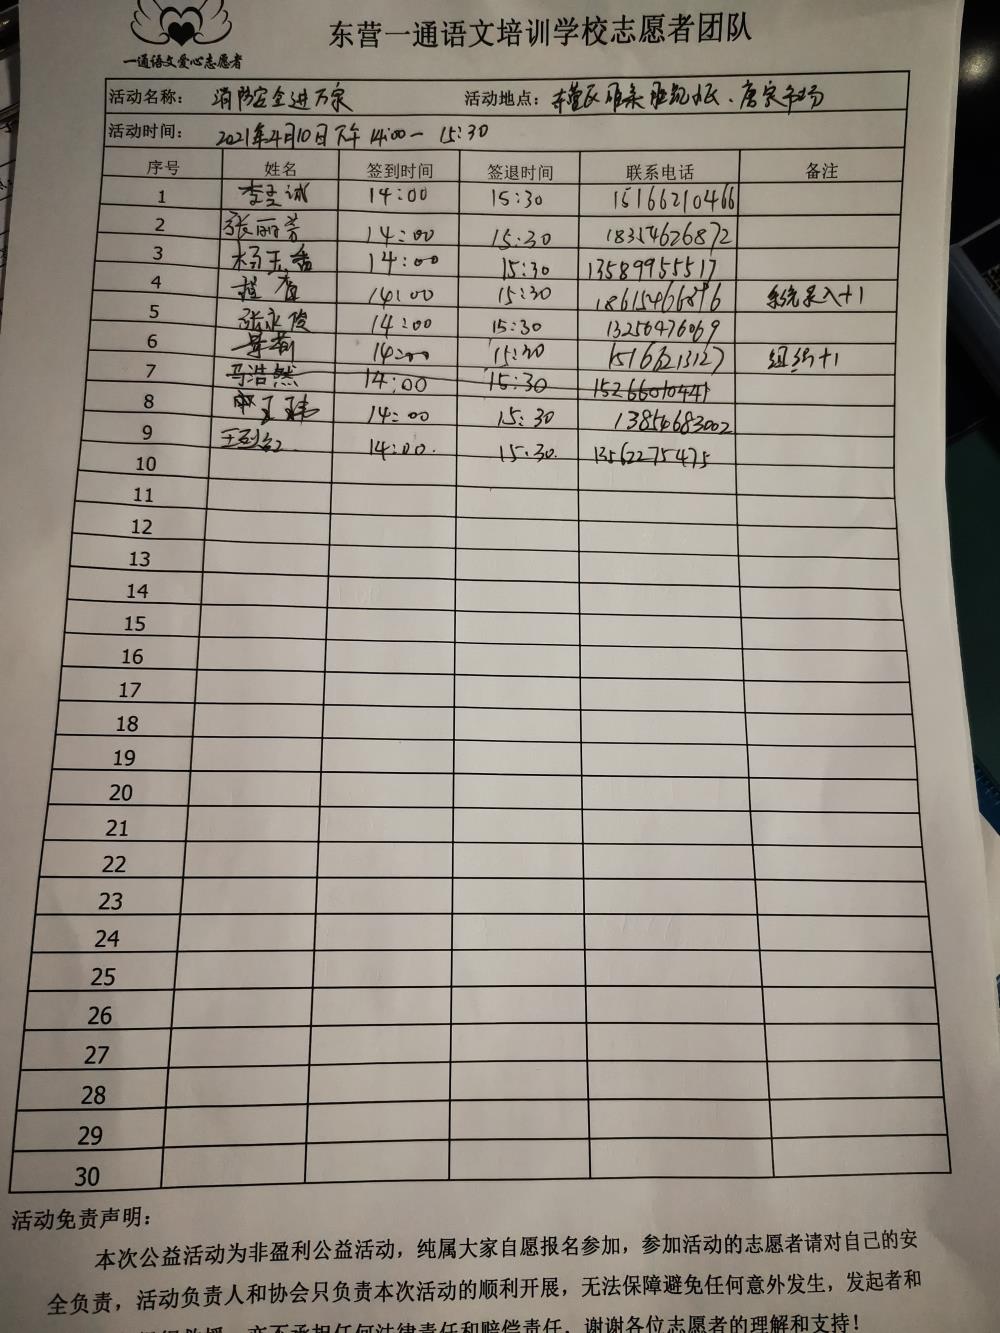 东营一通语文培训学校志愿者团队
一通语文爱心志愿者
活动名称： 消防安全进万家 活动地点： 唐家市场
活动时间： 2021年4月10日下午 14:00— 15:30
序号 姓名 签到时间 签退时间 联系电话 备注
1 14:00 15:30 15166210466
2 张丽芳 14:00 15:30 18354626872
3 杨玉香 14:00 15:30 13589955517
4 14:00 15:30 系统录入+1
5 张永俊 14:00 15:30 13256476069
6 14:00 15:30 15166213127 组织+1
7 马浩然 14:00 15:30 15266010441
8 14:00 15:30 13854683002
9 14:00. 15:30. 13562275475
10
11
12
13
14
15
16
17
18
19
20
21
22
23
24
25
26
27
28
29
30
活动免责声明：
本次公益活动为非盈利公益活动，纯属大家自愿报名参加，参加活动的志愿者请对自己的安
全负责，活动负责人和协会只负责本次活动的顺利开展，无法保障避免任何意外发生，发起者和
亦不承担任何法律责任和赔偿责任，谢谢各位志愿者的理解和支持！